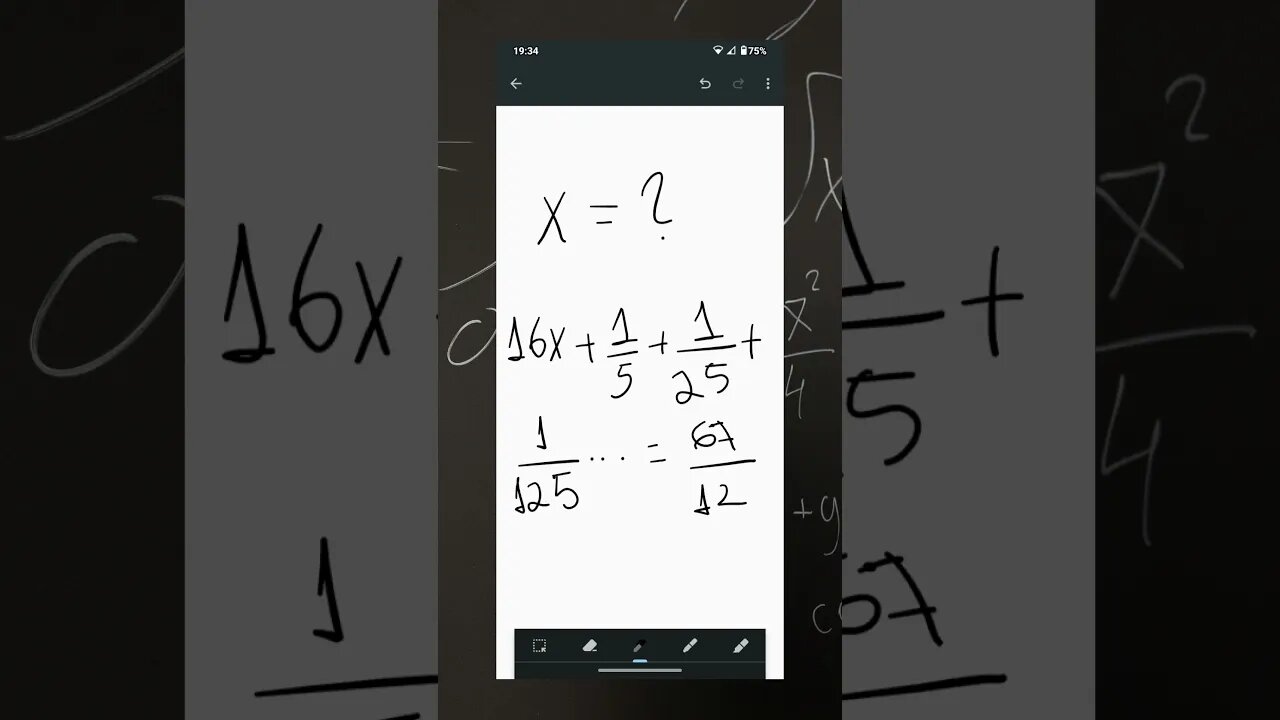 19:34
75%
x = ?
16x + 1/5 + 1/25 +
1/125 ... = 67/12